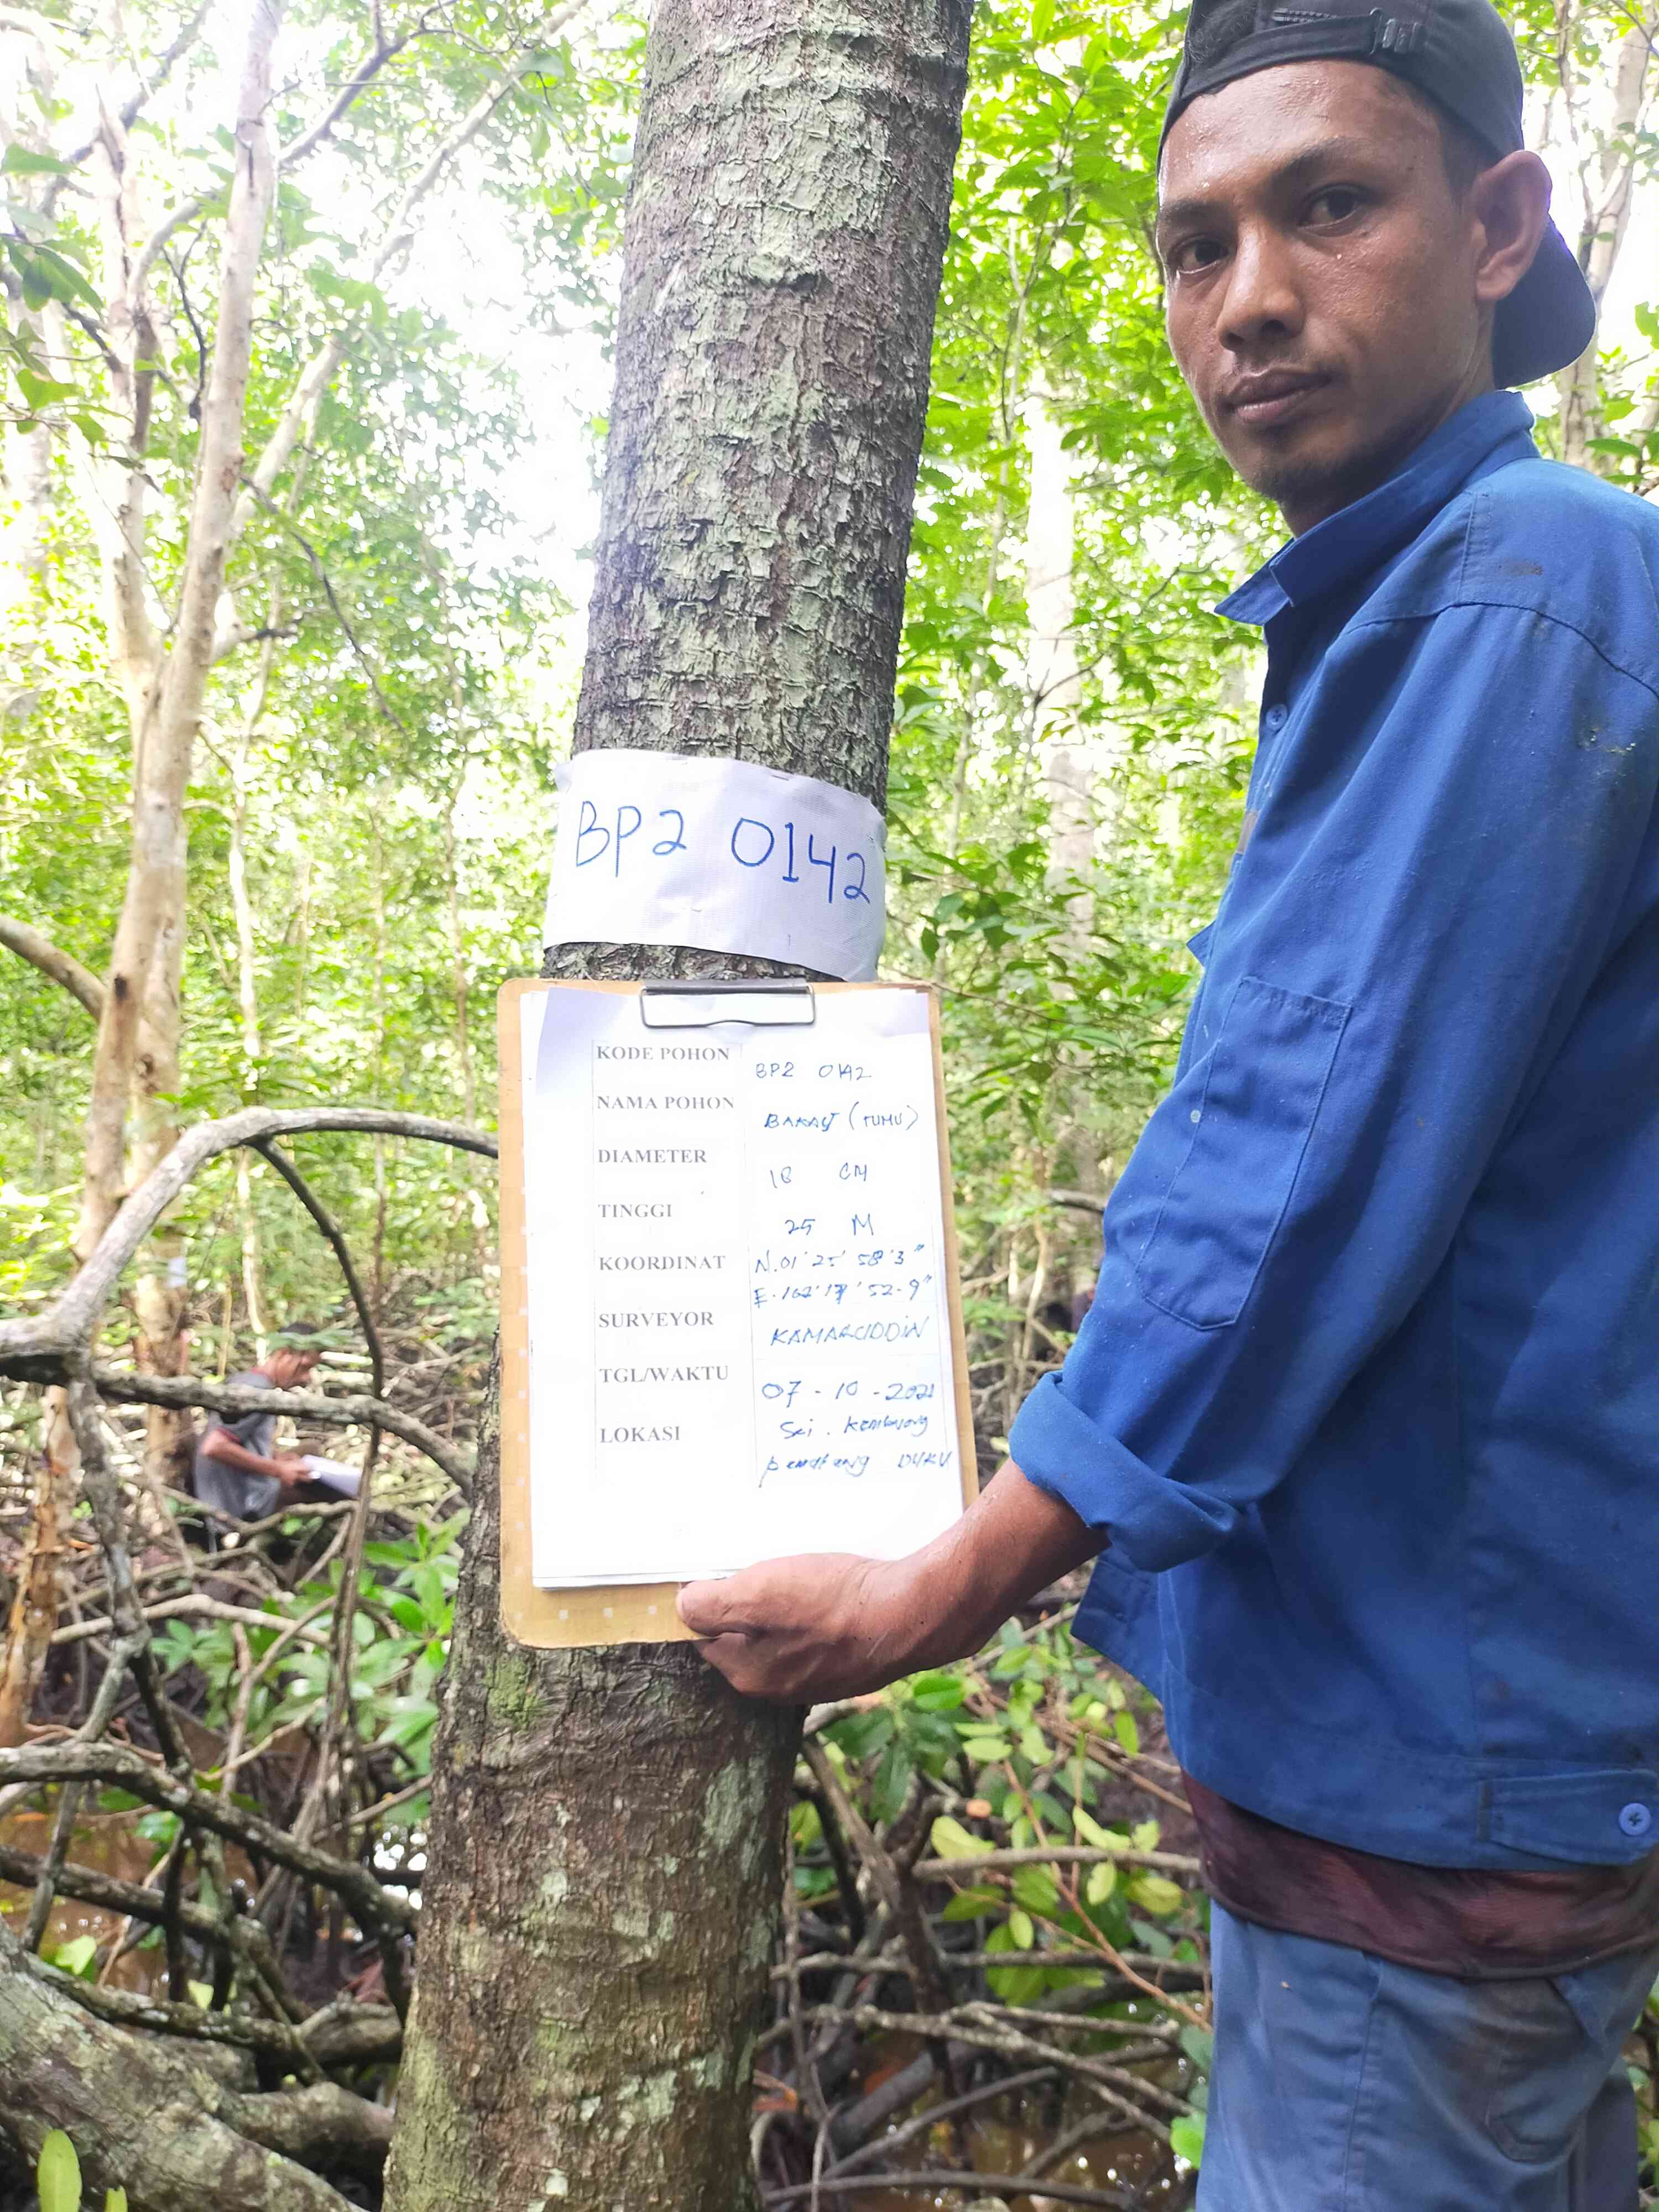 BP2 0142
KODE POHON BP2 0142
NAMA POHON BAKAU (TUMU)
DIAMETER 18 CM
TINGGI 25 M
KOORDINAT N.01'25'58'3"
E.102'19'52-9"
SURVEYOR KAMARUDDIN
TGL/WAKTU 07-10-2021
LOKASI Sei. Kembung
Pematang DUKU